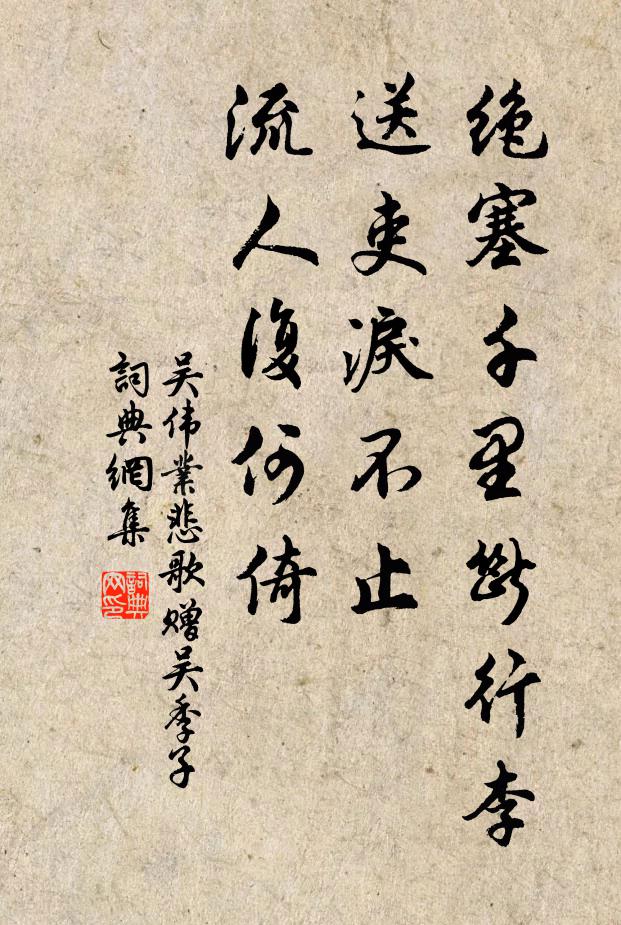 絶塞千里斷行李
送吏淚不止
流人復何倚
吴伟業悲歌赠吴季子
詞典網集
詞典网印